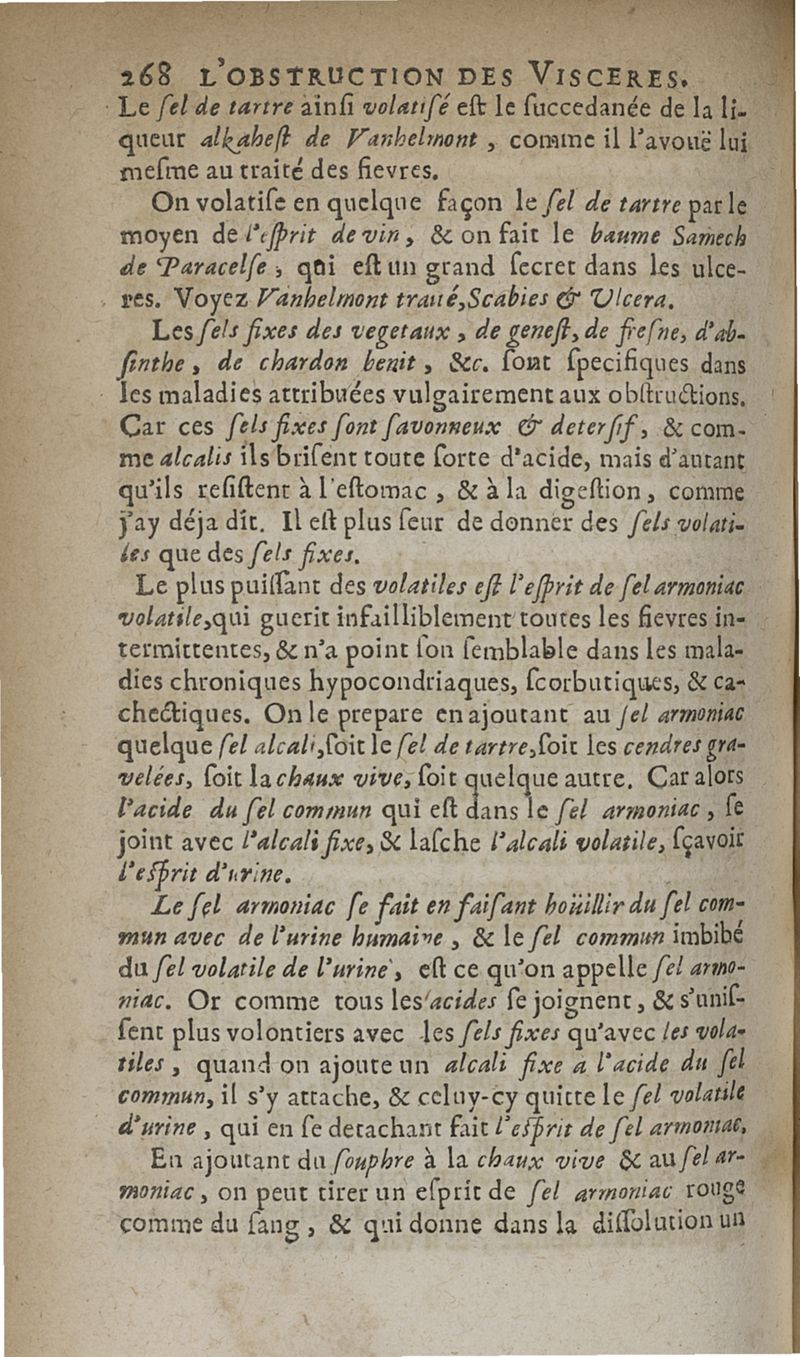 268 L'OBSTRUCTION DES VISCERES.
Le ſel de tartre ainſi volatiſé eſt le ſuccedanée de la li-
queur alkaheſt de Vanhelmont , comme il l'avouë lui
meſme au traité des fievres.
On volatiſe en quelque façon le ſel de tartre par le
moyen de l'eſprit de vin, & on fait le baume Samech
de Paracelſe , qui eſt un grand ſecret dans les ulce-
res. Voyez Vanhelmont traité,Scabies & Ulcera.
Les ſels fixes des vegetaux , de geneſt, de freſne, d'ab-
ſinthe , de chardon benit , &c. ſont ſpecifiques dans
les maladies attribuées vulgairement aux obſtructions.
Car ces ſels fixes ſont ſavonneux & deterſif, & com-
me alcalis ils briſent toute ſorte d'acide, mais d'autant
qu'ils reſiſtent à l'eſtomac , & à la digeſtion, comme
j'ay déja dît. Il eſt plus ſeur de donner des ſels volati-
les que des ſels fixes.
Le plus puiſſant des volatiles eſt l'eſprit de ſel armoniac
volatile,qui guerit infailliblement toutes les fievres in-
termittentes, & n'a point ſon ſemblable dans les mala-
dies chroniques hypocondriaques, ſcorbutiques, & ca-
chectiques. On le prepare en ajoutant au ſel armoniac
quelque ſel alcali,ſoit le ſel de tartre,ſoit les cendres gra-
velées, ſoit la chaux vive, ſoit quelque autre. Car alors
l'acide du ſel commun qui eſt dans le ſel armoniac , ſe
joint avec l'alcali fixe, & laſche l'alcali volatile, ſçavoir
l'eſprit d'urine.
Le ſel armoniac ſe fait en faiſant boüillir du ſel com-
mun avec de l'urine humaine , & le ſel commun imbibé
du ſel volatile de l'urine, eſt ce qu'on appelle ſel armo-
niac. Or comme tous les acides ſe joignent, & s'uniſ-
ſent plus volontiers avec les ſels fixes qu'avec les vola-
tiles , quand on ajoute un alcali fixe a l'acide du ſel
commun, il s'y attache, & celuy-cy quitte le ſel volatile
d'urine , qui en ſe detachant fait l'eſprit de ſel armoniac,
En ajoutant du ſouphre à la chaux vive & au ſel ar-
moniac, on peut tirer un eſprit de ſel armoniac rouge
comme du ſang , & qui donne dans la diſſolution un